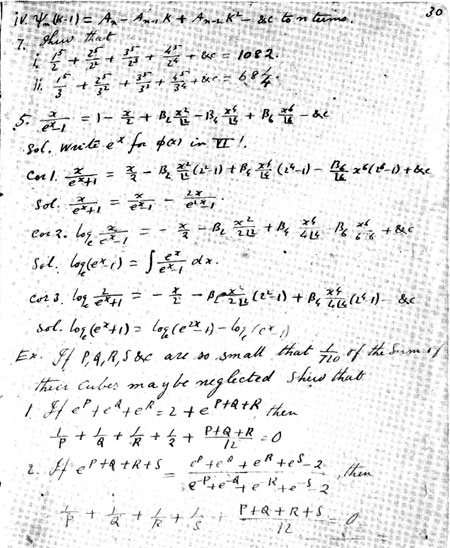 30
iv. Ψₙ(k-1) = Aₙ - Aₙ₋₁K + Aₙ₋₂K² - &c to n terms.
7. Shew that
i. 1⁵/2 + 2⁵/2² + 3⁵/2³ + 4⁵/2⁴ + &c = 1082.
ii. 1⁵/3 + 2⁵/3² + 3⁵/3³ + 4⁵/3⁴ + &c = 684.
5. x/(eˣ-1) = 1 - x/2 + B₂ x²/|2 - B₄ x⁴/|4 + B₆ x⁶/|6 - &c
Sol. Write eˣ for φ(x) in VI 1.
Cor 1. x/(eˣ+1) = x/2 - B₂ x²/|2 (2²-1) + B₄ x⁴/|4 (2⁴-1) - B₆/|6 x⁶(2⁶-1) + &c
Sol. x/(eˣ+1) = x/(eˣ-1) - 2x/(e²ˣ-1).
Cor 2. logₑ x/(eˣ-1) = - x/2 - B₂ x²/2|2 + B₄ x⁴/4|4 - B₆ x⁶/6|6 + &c
Sol. logₑ(eˣ-1) = ∫ eˣ/(eˣ-1) dx.
Cor 3. logₑ 2/(eˣ+1) = - x/2 - B₂ x²/2|2 (2²-1) + B₄ x⁴/4|4 (2⁴-1) - &c
Sol. logₑ(eˣ+1) = logₑ(e²ˣ-1) - logₑ(eˣ-1)
Ex. If P, Q, R, S &c are so small that 1/720 of the sum of
their cubes may be neglected shew that
1. If e^P + e^Q + e^R = 2 + e^(P+Q+R) then
1/P + 1/Q + 1/R + 1/2 + (P+Q+R)/12 = 0
2. If e^(P+Q+R+S) = (e^P + e^Q + e^R + e^S - 2)/(e^-P + e^-Q + e^-R + e^-S - 2), then
1/P + 1/Q + 1/R + 1/S + (P+Q+R+S)/12 = 0